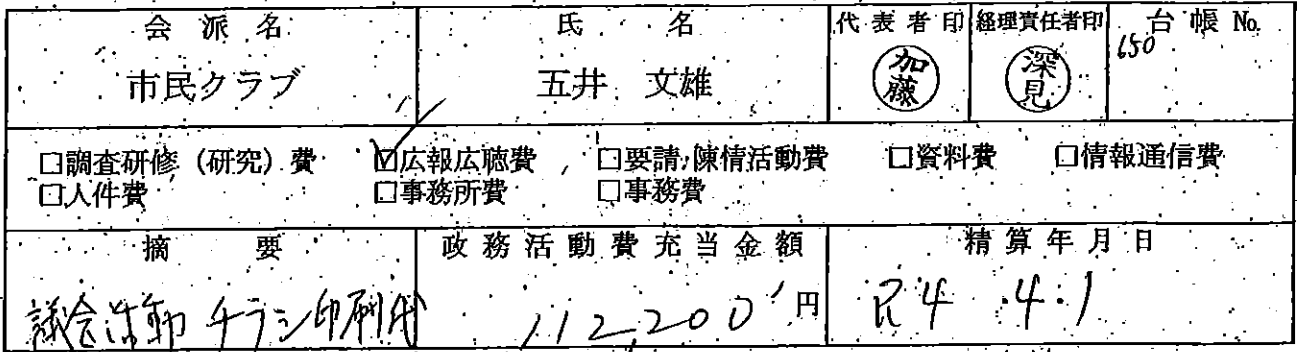 会派名 氏名 代表者印 経理責任者印 台帳 No.
市民クラブ 五井 文雄 加藤 深見 650
□調査研修 (研究) 費 ☑広報広聴費 □要請,陳情活動費 □資料費 □情報通信費
□人件費 □事務所費 □事務費
摘要 政務活動費充当金額 精算年月日
議会活動 チラシ印刷代 112,200 円 R4 .4.1